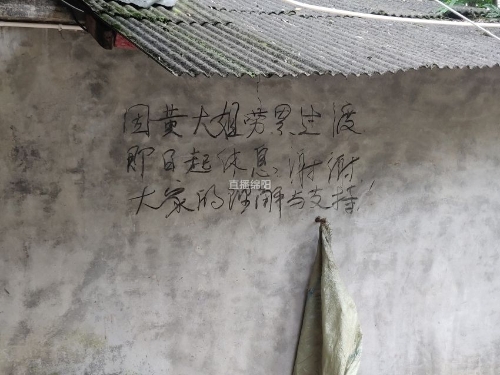 因黄大姐劳累过度
即日起休息、谢谢
大家的理解与支持!
直播绵阳